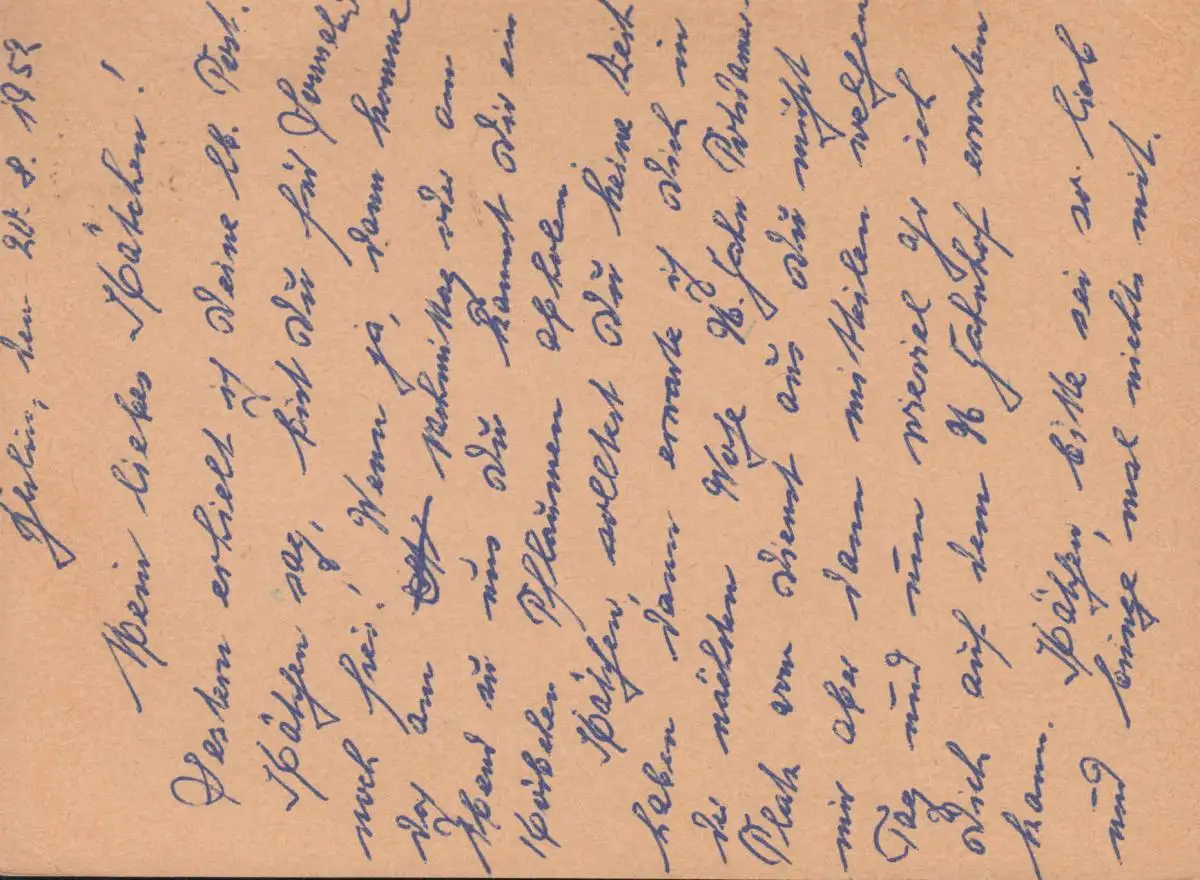 Berlin, den 20. 8. 1952
Mein liebes Kätchen!
Gestern erhielt ich Deine lb. Post.
Kätchen sag, bist Du für Sonnabend
noch frei? Wenn ja, dann komme
doch am Nachmittag oder am
Abend zu uns Du kannst Dir ein
Körbchen Pflaumen abholen
Kätchen, solltest Du keine Zeit
haben dann erwarte ich Dich in
der nächsten Woche S. Bahn Potsdamer
Platz vom Dienst aus Du müßt
mir aber dann mitteilen welchen
Tag und um wieviel Uhr ich
Dich auf dem S Bahnhof erwarten
kann. Kätchen bitte sei so lieb
und bringe mal nichts mit.